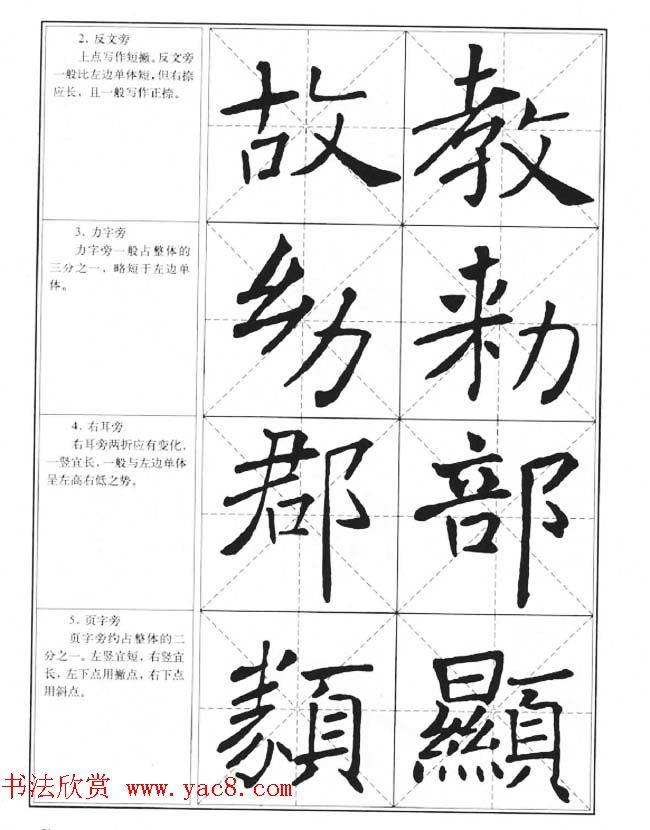 2. 反文旁
上点写作短撇。反文旁
一般比左边单体短，但右捺
应长、且一般写作正捺。
故 教
3. 力字旁
力字旁一般占整体的
三分之一、略短于左边单
体。
幼 勑
4. 右耳旁
右耳旁两折应有变化，
一竖宜长，一般与左边单体
呈左高右低之势。
郡 部
5. 页字旁
页字旁约占整体的二
分之一。左竖宜短，右竖宜
长，左下点用撇点，右下点
用斜点。
顯
书法欣赏 www.yac8.com